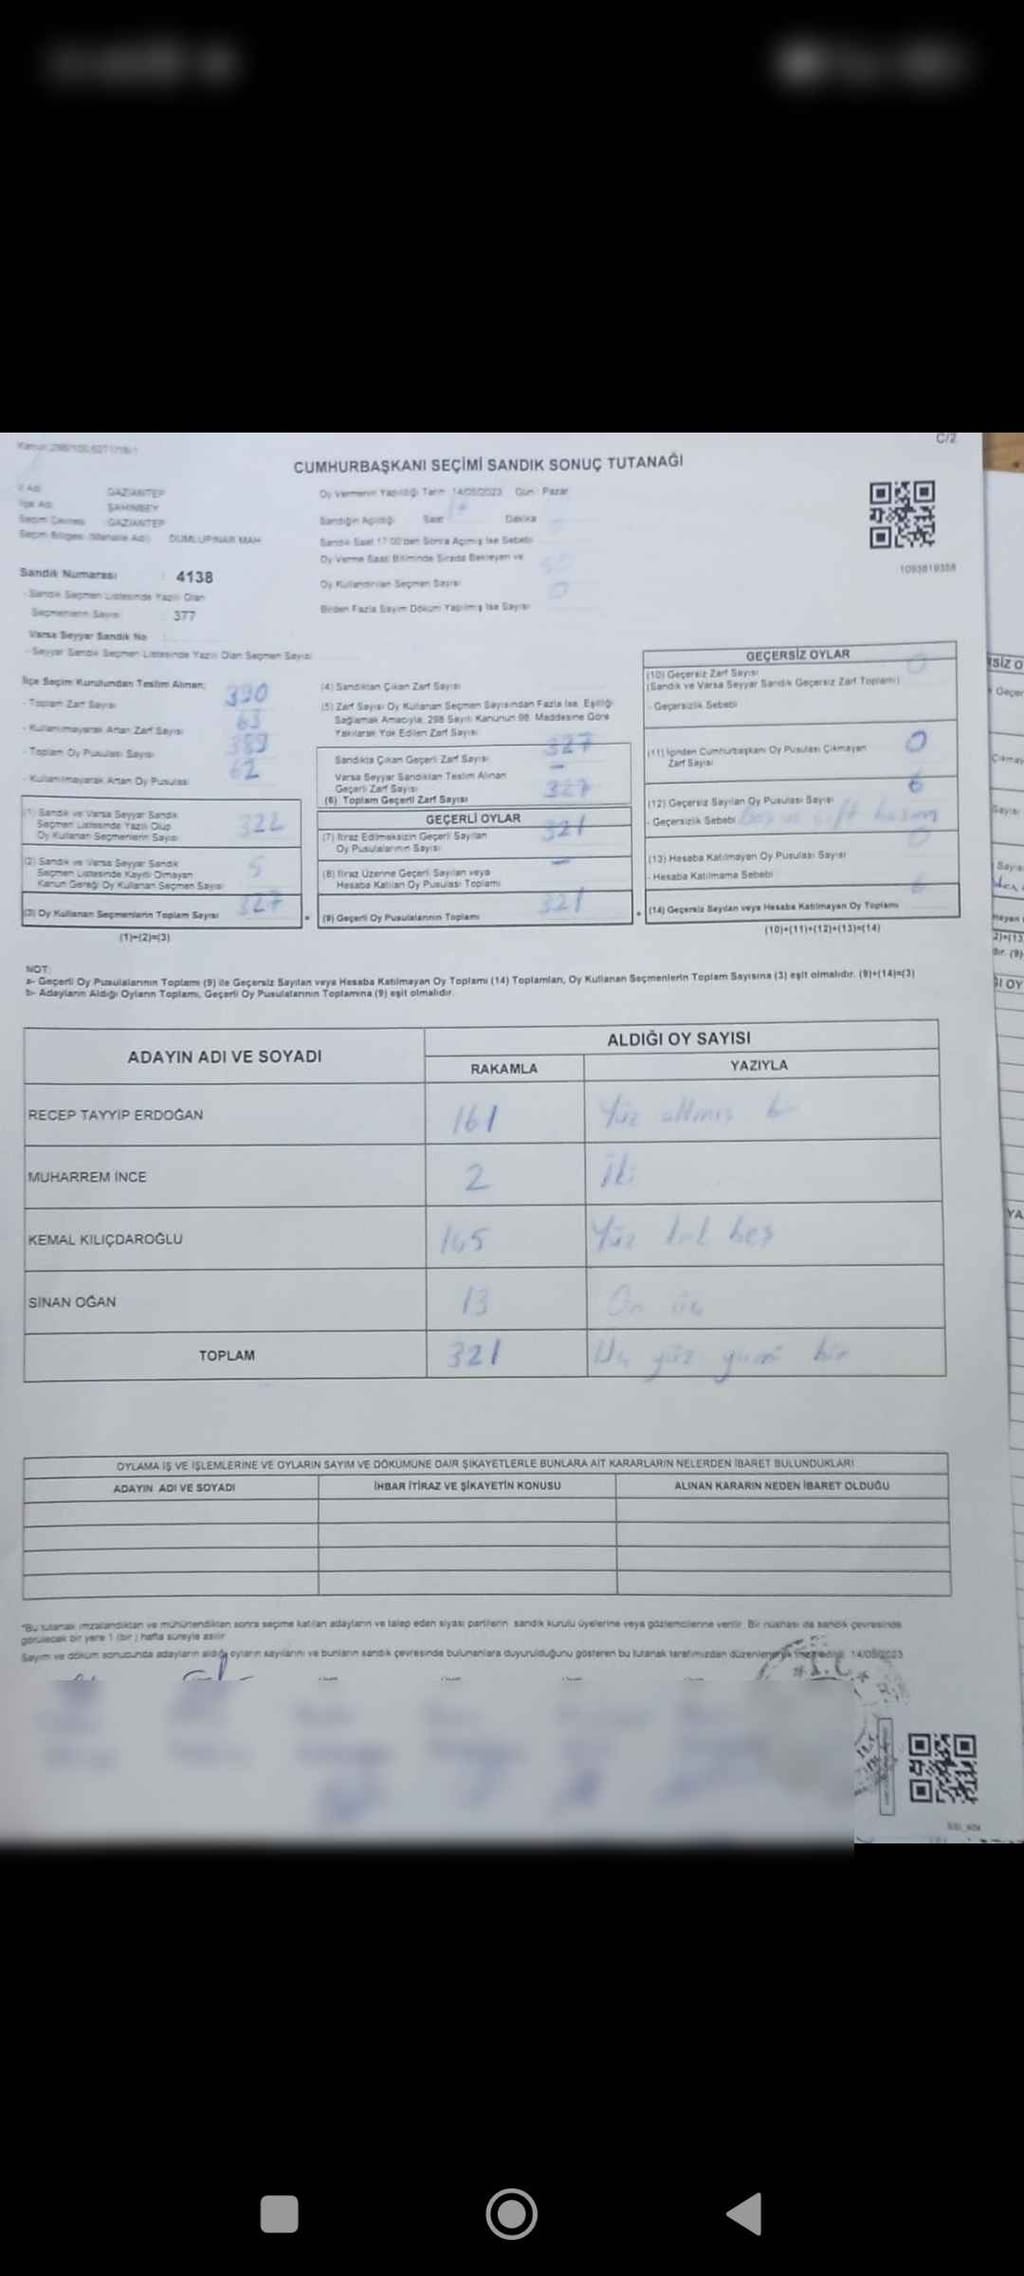 C/2
CUMHURBAŞKANI SEÇİMİ SANDIK SONUÇ TUTANAĞI
İl Adı GAZİANTEP
İlçe Adı ŞAHİNBEY
Seçim Çevresi GAZİANTEP
Seçim Bölgesi (Mahalle Adı) DUMLUPINAR MAH
Sandık Numarası : 4138
- Sandık Seçmen Listesinde Yazılı Olan
Seçmenlerin Sayısı : 377
Varsa Seyyar Sandık No
- Seyyar Sandık Seçmen Listesinde Yazılı Olan Seçmen Sayısı
Oy Vermenin Yapıldığı Tarih 14/05/2023 Gün Pazar
Sandığın Açıldığı Saat Dakika
Sandık Saat 17:00'den Sonra Açılmış İse Sebebi
Oy Verme Saati Bitiminde Sırada Bekleyen ve
Oy Kullandırılan Seçmen Sayısı
Birden Fazla Sayım Döküm Yapılmış İse Sayısı 0
1093819358
İlçe Seçim Kurulundan Teslim Alınan;
- Toplam Zarf Sayısı 390
- Kullanılmayarak Artan Zarf Sayısı 63
- Toplam Oy Pusulası Sayısı 389
- Kullanılmayarak Artan Oy Pusulası 62
(1) Sandık ve Varsa Seyyar Sandık
Seçmen Listesinde Yazılı Olup
Oy Kullanan Seçmenlerin Sayısı 322
(2) Sandık ve Varsa Seyyar Sandık
Seçmen Listesinde Kayıtlı Olmayan
Kanun Gereği Oy Kullanan Seçmen Sayısı 5
(3) Oy Kullanan Seçmenlerin Toplam Sayısı 327
(1)+(2)=(3)
(4) Sandıktan Çıkan Zarf Sayısı
(5) Zarf Sayısı Oy Kullanan Seçmen Sayısından Fazla İse, Eşitliği
Sağlamak Amacıyla, 298 Sayılı Kanunun 98. Maddesine Göre
Yakılarak Yok Edilen Zarf Sayısı
Sandıkta Çıkan Geçerli Zarf Sayısı 327
Varsa Seyyar Sandıktan Teslim Alınan
Geçerli Zarf Sayısı –
(6) Toplam Geçerli Zarf Sayısı 327
GEÇERLİ OYLAR
(7) İtiraz Edilmeksizin Geçerli Sayılan
Oy Pusulalarının Sayısı 321
(8) İtiraz Üzerine Geçerli Sayılan veya
Hesaba Katılan Oy Pusulası Toplamı –
(9) Geçerli Oy Pusulalarının Toplamı 321
GEÇERSİZ OYLAR
(10) Geçersiz Zarf Sayısı 0
(Sandık ve Varsa Seyyar Sandık Geçersiz Zarf Toplamı)
- Geçersizlik Sebebi
(11) İçinden Cumhurbaşkanı Oy Pusulası Çıkmayan
Zarf Sayısı 0
(12) Geçersiz Sayılan Oy Pusulası Sayısı 6
- Geçersizlik Sebebi Boş ve çift basım
(13) Hesaba Katılmayan Oy Pusulası Sayısı 0
- Hesaba Katılmama Sebebi
(14) Geçersiz Sayılan veya Hesaba Katılmayan Oy Toplamı 6
(10)+(11)+(12)+(13)=(14)
NOT:
a- Geçerli Oy Pusulalarının Toplamı (9) ile Geçersiz Sayılan veya Hesaba Katılmayan Oy Toplamı (14) Toplamları, Oy Kullanan Seçmenlerin Toplam Sayısına (3) eşit olmalıdır. (9)+(14)=(3)
b- Adayların Aldığı Oyların Toplamı, Geçerli Oy Pusulalarının Toplamına (9) eşit olmalıdır.
ADAYIN ADI VE SOYADI
ALDIĞI OY SAYISI
RAKAMLA YAZIYLA
RECEP TAYYİP ERDOĞAN 161 Yüz altmış bir
MUHARREM İNCE 2 İki
KEMAL KILIÇDAROĞLU 145 Yüz kırk beş
SİNAN OĞAN 13 On üç
TOPLAM 321 Üç yüz yirmi bir
OYLAMA İŞ VE İŞLEMLERİNE VE OYLARIN SAYIM VE DÖKÜMÜNE DAİR ŞİKAYETLERLE BUNLARA AİT KARARLARIN NELERDEN İBARET BULUNDUKLARI
ADAYIN ADI VE SOYADI İHBAR İTİRAZ VE ŞİKAYETİN KONUSU ALINAN KARARIN NEDEN İBARET OLDUĞU
*Bu tutanak imzalandıktan ve mühürlendikten sonra seçime katılan adayların ve talep eden siyasi partilerin sandık kurulu üyelerine veya gözlemcilerine verilir. Bir nüshası da sandık çevresinde
görülecek bir yere 1 (bir) hafta süreyle asılır.
Sayım ve döküm sonucunda adayların aldığı oyların sayılarını ve bunların sandık çevresinde bulunanlara duyurulduğunu gösteren bu tutanak tarafımızdan düzenlenerek imza edildi. 14/05/2023